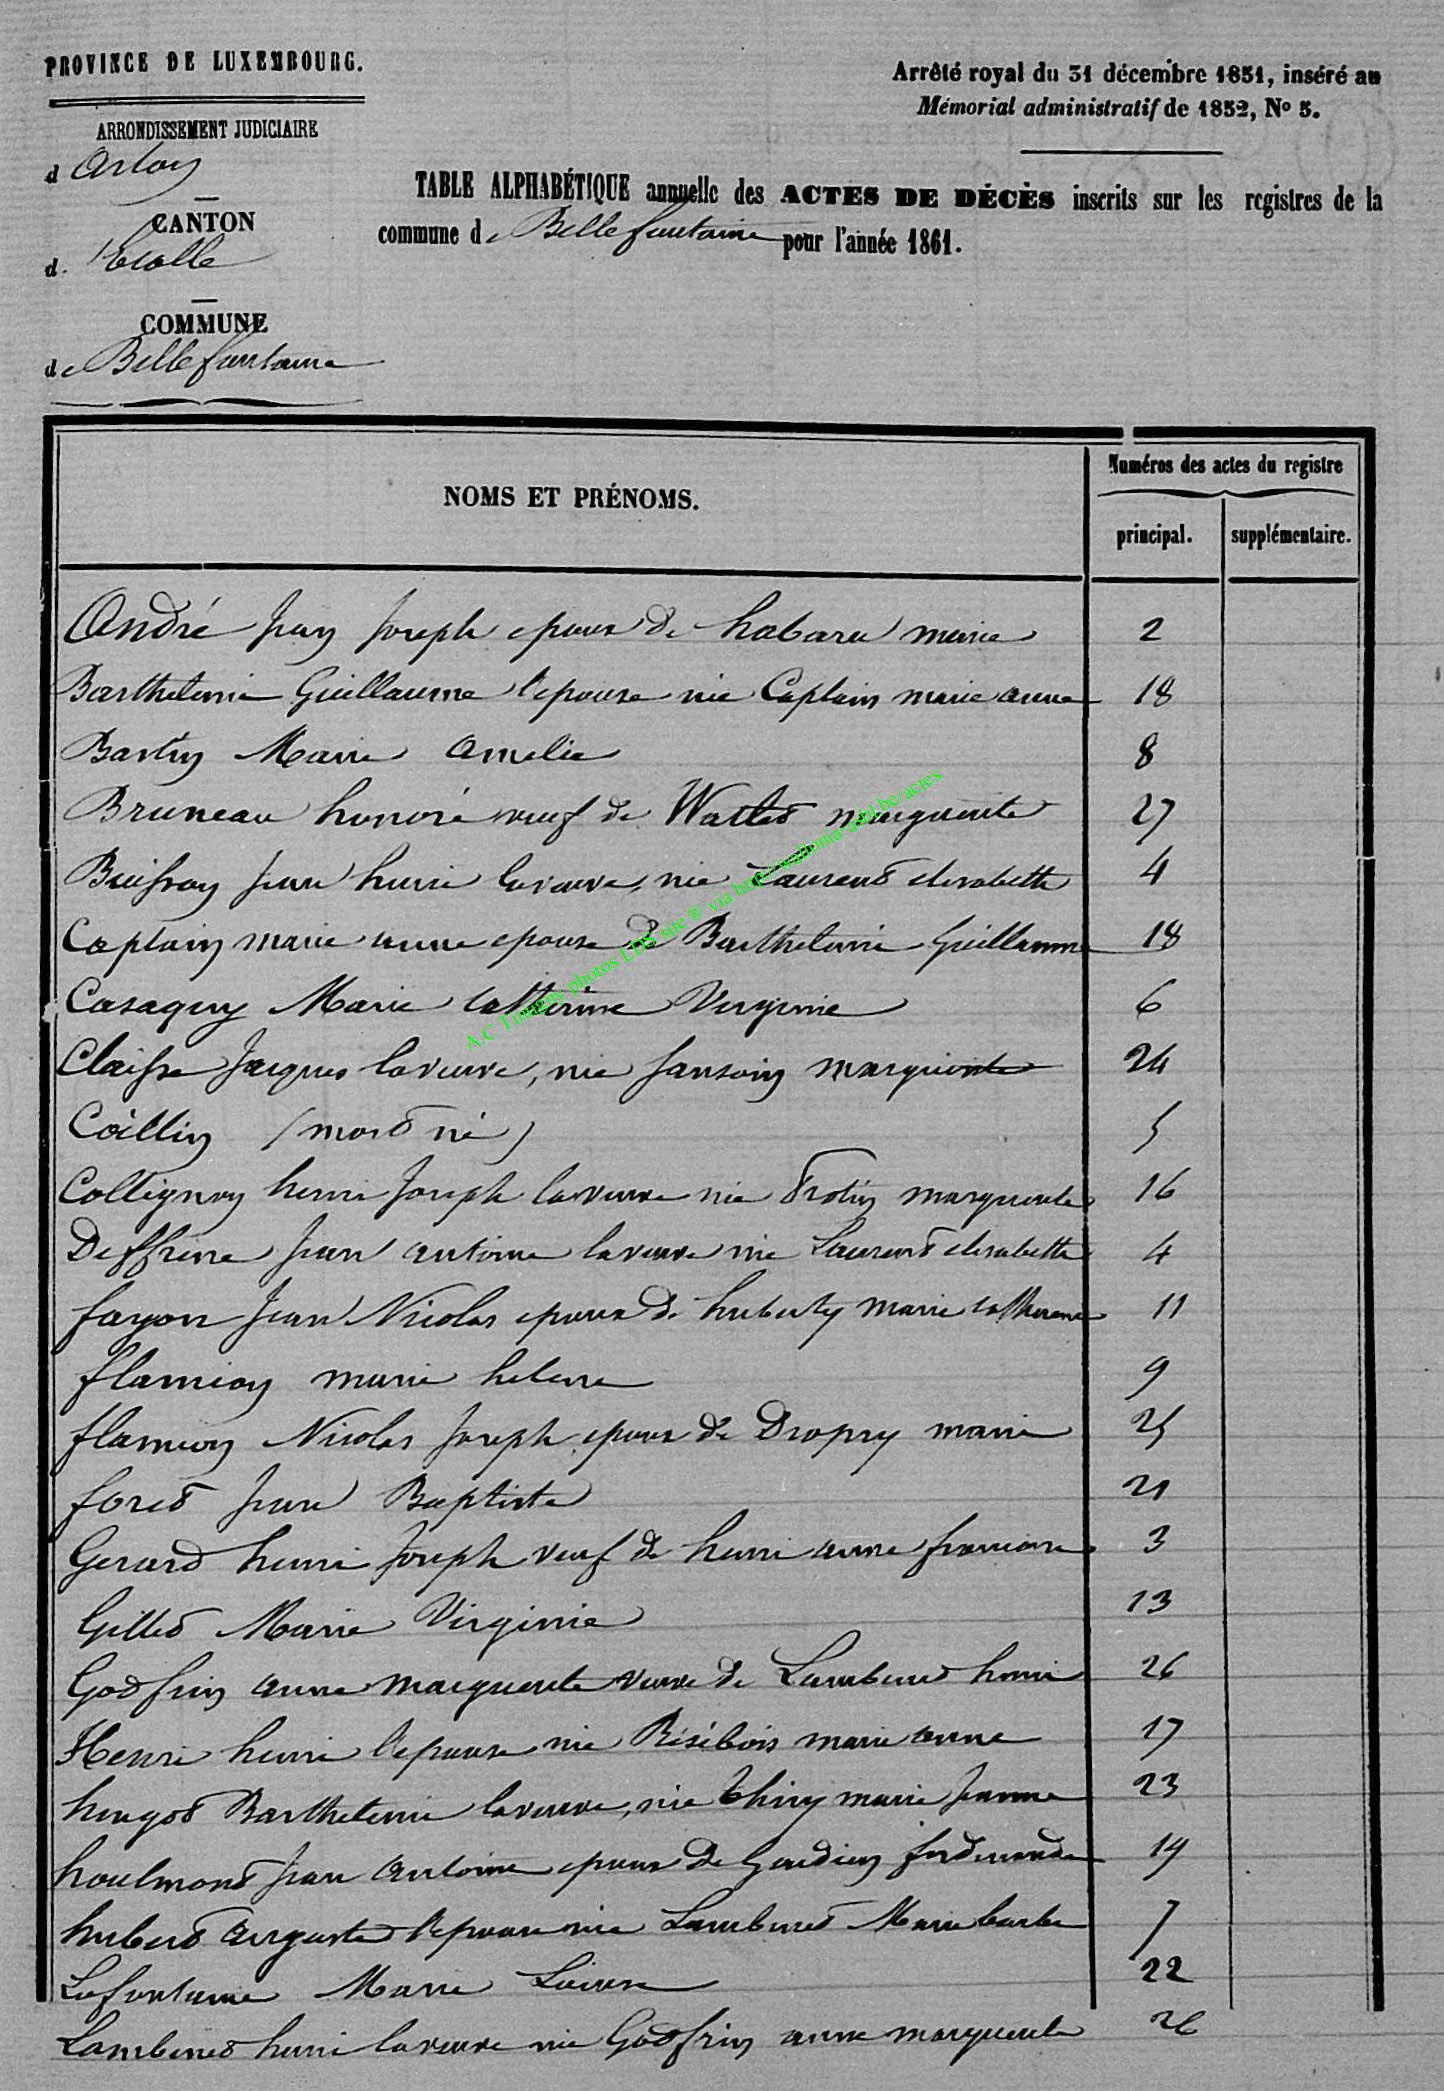 PROVINCE DE LUXEMBOURG.
Arrêté royal du 31 décembre 1851, inséré au
Mémorial administratif de 1852, No 5.
ARRONDISSEMENT JUDICIAIRE
d Arlon
CANTON
d. Etalle
COMMUNE
de Bellefontaine
TABLE ALPHABÉTIQUE annuelle des ACTES DE DÉCÈS inscrits sur les registres de la
commune de Bellefontaine pour l'année 1861.
NOMS ET PRÉNOMS.
Numéros des actes du registre
principal.
supplémentaire.
André Jean Joseph epoux de habaru marie 2
Barthelemie Guillaume l'epouse née Captain marie anne 18
Bartin Marie Amelie 8
Bruneau honoré veuf de Wattes marguerite 27
Jean henri la veuve, née Laurent elisabeth 4
Captain marie anne epouse de Barthelemie Guillaume 18
Casaquy Marie Catherine Virginie 6
Claisse Jacques la veuve, née Sanson marguerite 24
Collin (mort né) 5
Collignon henri Joseph la veuve née Trotin marguerite 16
Deffrene Jean antoine la veuve née Laurent elisabeth 4
fayon Jean Nicolas epoux de huberty marie catherine 11
flamion marie helene 9
flamion Nicolas Joseph epoux de Dropsy marie 25
foret Jean Baptiste 21
Gerard henri Joseph veuf de henri anne francoise 3
Gillet Marie Virginie 13
Godfrin anne marguerite veuve de Lambinet henri 26
Henri henri l'epouse née Résibois marie anne 17
hengot Barthelemie la veuve, née thiry marie Jeanne 23
houlmont Jean Antoine epoux de ferdinande 19
hubert auguste l'epouse née Lambinet Marie barbe 7
Lafontaine Marie Louise 22
Lambinet henri la veuve née Godfrin anne marguerite 26
A.C Tintigny photos LDS site ® via http://wallonia-asbl.be/actes